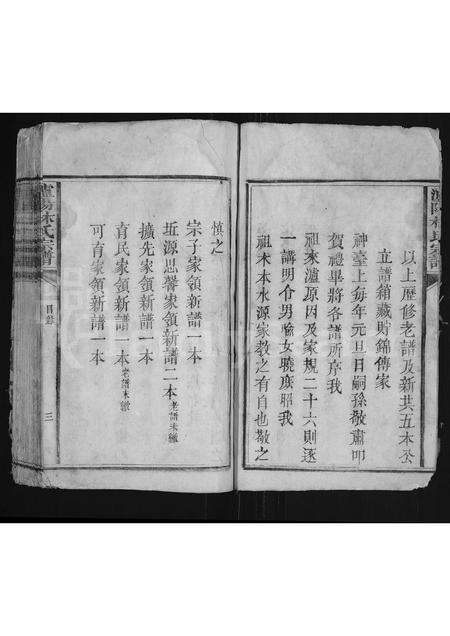 以上歷修老譜及新共五本公
立譜箱藏貯錦傳家
神臺上每年元旦日嗣孫敬肅叩
賀禮畢將各譜所序我
祖來瀘原因及家規二十六則逐
一講明令男喻女曉庶昭我
祖木本水源家教之有自也敬之
慎之
宗子家領新譜一本
近源思聲家領新譜二本老譜未繳
擴先家領新譜一本
育民家領新譜一本老譜未繳
可育家領新譜一本
林氏宗譜
目錄
三